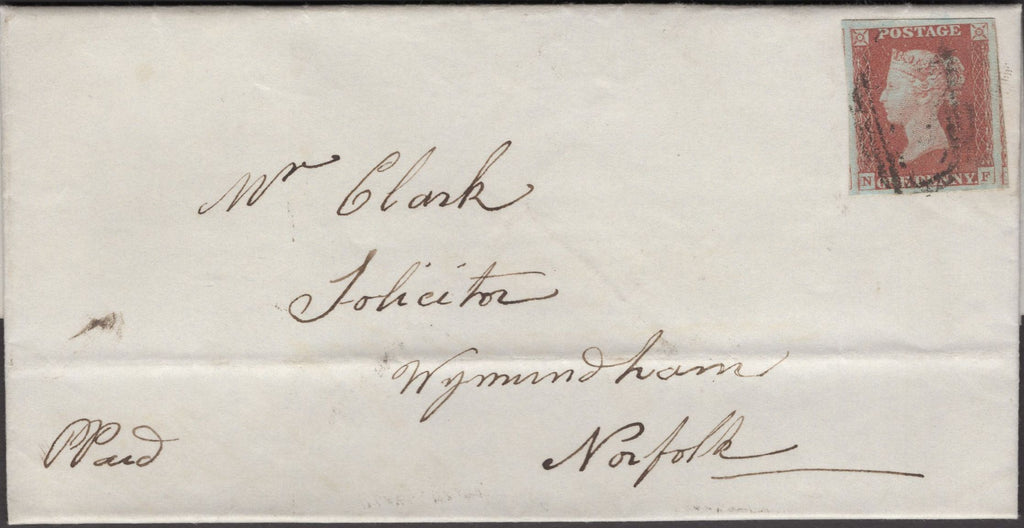 POSTAGE
N ONE PENNY F
Mr Clark
Solicitor
Wymundham
Norfolk
PPaid